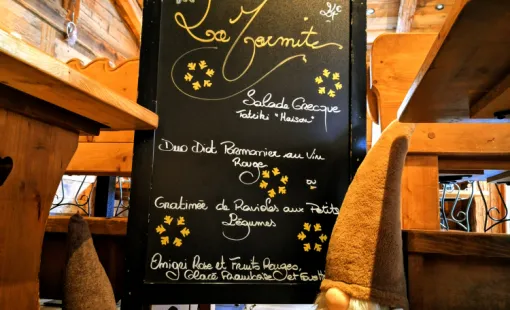 La Marmite
Salade Grecque
Tzatziki "Maison"
Duo Diot Pormonier au Vin
Rouge
ou
Gratinée de Ravioles aux Petits
Légumes
Rose et Fruits Rouges,
Glace Framboise et